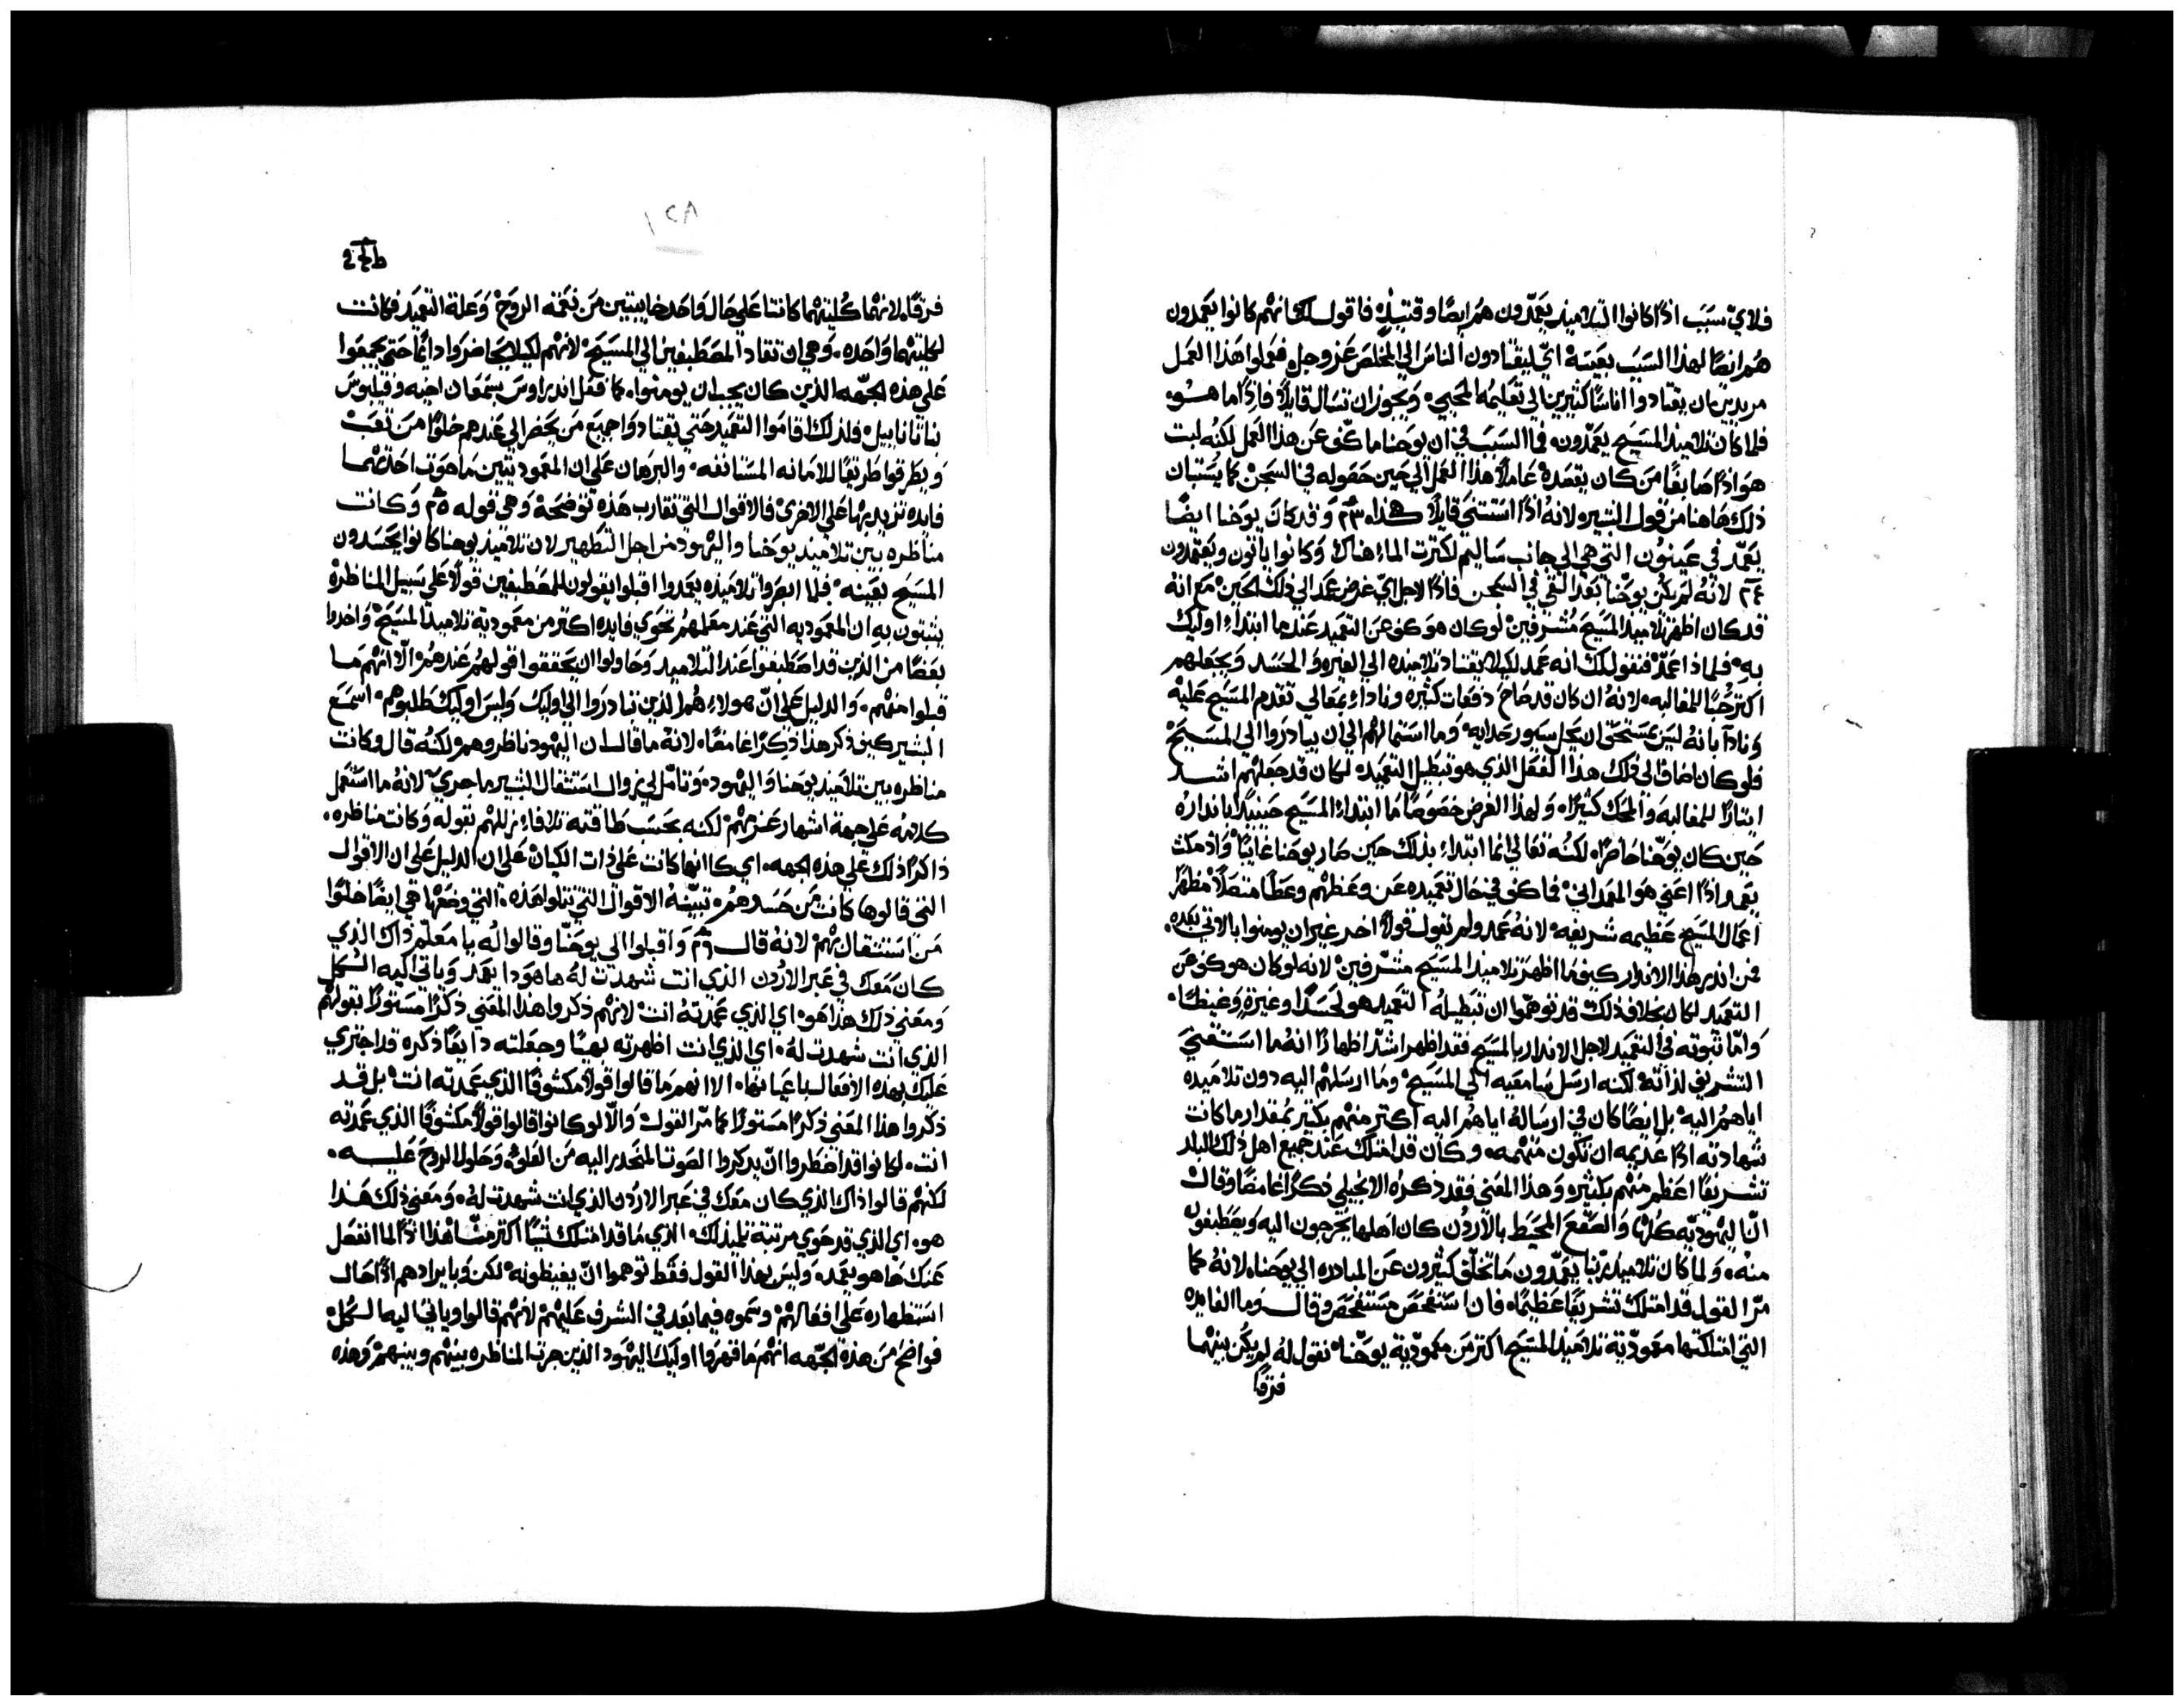 فلاي سبب اذًا كانوا التلاميذ يعمّدون هم ايضًا وقتيذٍ فاقول لك انهم كانوا يعمدون
هم ايضًا لهذا السبب بعينه اي ليقتادون الناس الي المخلص عز وجل فعلوا هذا العمل
مريدين ان يقتادوا اناسًا كثيرين الي تعليمه المحيي ويجوز ان نسال قايلاً فاذًا ما هو
فلما كان تلاميذ المسيح يعمدون فما السبب في ان يوحنا ما كف عن هذا العمل لكنه لبث
هو اذًا صابغًا من كان يقصده عاملاً هذا العمل الي حين حصوله في السجن كما يستبان
ذلك هاهنا من قول البشير لانه اذًا استثني قايلاً هكذا ٢٣ وقد كان يوحنا ايضًا
يعمّد في عينون التي هي الي جانب ساليم لكثرت الماء هناك وكانوا ياتون ويعتمدون
٢٤ لانه لم يكن يوحنا بعد القي في السجن فاذًا لاجل اي غرض عمد الي ذلك الحين مع انه
قد كان اظهر تلاميذ المسيح مشرفين لو كان هو كف عن التعميد عندما ابتداء اوليك
به فلماذا عمّد فنقول لك انه عمد لكيلا يقتاد تلاميذه الي الغيره والحسد ويجعلهم
اكثر حُبًا للمغالبه لانه ان كان قد صاح دفعات كثيره وناداء بمعالي تقدم المسيح عليه
ونادا بانه ليس بمستحق ان يحل سيور حذايه وما استمالهم الي ان يبادروا الي المسيح
فلو كان اضاف الي ذلك هذا الفعل الذي هو تبطيل التعميد لكان قد جعلهم اشد
ايثارًا للمغالبه والمحك كثيرًا ولهذا الغرض خصوصًا ما ابتداء المسيح حينيذٍ بانداره
حين كان يوحنا حاضرًا لكنه تعالي انما ابتداء بذلك حين صار يوحنا غايبًا واذ مكث
يعمد اذًا اعني هو المعمداني فما كف في حال تعميده عن وعظهم وعظًا متصلاً مظهرًا
اعمال المسيح عظيمه شريفه لانه عمد ولم يقول قولاً اخر غير ان يومنوا بالاتي بعده
فمن انذر هذا الانذار كيف ما اظهر تلاميذ المسيح مشرفين لانه لو كان هو كف عن
التعميد لكان بخلاف ذلك قد توهموا ان تبطيله التعميد هو لحسدًا وغيرةٍ وغيظًا
واما ثبوته في التعميد لاجل الانذار بالمسيح فقد اظهر اشد اظهارًا انه ما استقني
التشريف لذاته لكنه ارسل سامعيه الي المسيح وما ارسلهم اليه دون تلاميذه
اياهم اليه بل ايضًا كان في ارساله اياهم اليه اكثر منهم بكثير بمقدار ما كانت
شهادته اذًا عديمه ان تكون متهمه وكان قد امتلك عند جميع اهل ذلك البلد
تشريفًا اعظم منهم بكثير وهذا المعني فقد ذكره الانجيلي ذكرًا غامضًا وقال
انّ اليهوديه كلها والصقع المحيط بالاردن كان اهلها يخرجون اليه ويصطبغون
منه ولما كان تلاميذ ربنا يعمّدون ما تخلّف كثيرون عن المبادره الي يوحنا لانه كما
مرّ القول قد امتلك تشريفًا عظيمًا فان استفحص مستفحص وقال وما الفايده
التي امتلكتها معموديّة تلاميذ المسيح اكثر من معموديّة يوحنا نقول له لم يكن بينهما
فرقًا
١٢٨
فرقًا لانهما كلتيهما كانتا علي حال واحد خايبتين من نعمة الروح وعلة التعميد فكانت
لكلتيهما واحده وهي ان تقاد المصطبغين الي المسيح لانهم لكيلا يحاضروا دايمًا حتي يجمعوا
علي هذه الجهه الذين كان يجب ان يومنوا كما فعل اندراوس بسمعان اخيه وفيلبوس
بناثانابيل فلذلك اقاموا التعميد حتي يقتادوا جميع من يحضر الي عندهم خلوًا من تعب
ويطرقوا طريقًا للامانه المستانفه والبرهان علي ان المعموديتين ما حوت احداهما
فايده تزيد بها علي الاخري فالاقوال التي تقارب هذه توضحه وهي قوله ٢٥ وكانت
مناظره بين تلاميذ يوحنا واليهود من اجل التطهير لان تلاميذ يوحنا كانوا يحسدون
المسيح بعينه فلما ابصروا تلاميذه يعمدوا اقبلوا يقولون للمصطبغين قولاً علي سبيل المناظرة
يثبتون به ان المعموديه التي عند معلمهم تحوي فايده اكثر من معمودية تلاميذ المسيح واخدوا
بعضًا من الذين قد اصطبغوا عند التلاميذ وحاولوا ان يحققوا قولهم عندهم الّا انهم ما
قبلوا منهم والدليل علي انّ هولاء هم الذين تبادروا الي اوليك وليس اوليك طلبوهم اسمع
البشير كيف ذكر هذا ذكرًا غامضًا لانه ما قال ان اليهود ناظروهم لكنه قال وكانت
مناظره بين تلاميذ يوحنا واليهود وتامل لي زوال استثقال البشير ما جري لانه ما استعمل
كلامه علي جهة اشهار عزمهم لكنه بحسب طاقته تلافاء زللهم بقوله وكانت مناظره
ذاكرًا ذلك علي هذه الجهه اي كانها كانت علي ذات الكيان علي ان الدليل علي ان الاقوال
التي قالوها كانت من حسدهم تبيّنه الاقوال التي تتلوا هذه التي وضعها هي ايضًا خلوًا
من استثقال بهم لانه قال ٢٦ واقبلوا الي يوحنّا وقالوا له يا معلّم ذاك الذي
كان معك في عبر الاردن الذي انت شهدت له ها هوذا يعمد وياتي اليه الكل
ومعني ذلك هذا هو اي الذي عمدته انت لانهم ذكروا هذا المعني ذكرًا مستورًا بقولهم
الذي انت شهدت له اي الذي انت اظهرته بهيًا وجعلته دايعًا ذكره قد اجتري
عليك بهذه الافعال باعيانها الا انهم ما قالوا قولاً مكشوفًا الذي عمدته انت بل قد
ذكروا هذا المعني ذكرًا مستورًا كما مرّ القول والّا لو كانوا قالوا قولاً مكشوفًا الذي عمدته
انت لكانوا قد اضطروا انّ يذكروا الصوت المنحدر اليه من العلو وحلول الروح عليه
لكنهم قالوا ذاك الذي كان معك في عبر الاردن الذي انت شهدت له ومعني ذلك هذا
هو اي الذي قد حوي مرتبة تلميذ لك الذي ما قد امتلك شيًا اكثر منّا هذا اذًا لما انفصل
عنك ها هو يعمد وليس بهذا القول فقط توهموا انّ يغيظونه لكن وبايرادهم اذًا حال
استظهاره علي افعالهم وسموه فيما بعد في الشرف عليهم لانهم قالوا وياتي اليه الكل
فواضح من هذه الجهه انهم ما قهروا اوليك اليهود الذين جرت المناظره بينهم وبينهم وهذه